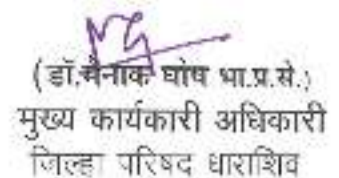 (डॉ.मैनाक घोष भा.प्र.से.)
मुख्य कार्यकारी अधिकारी
जिल्हा परिषद धाराशिव